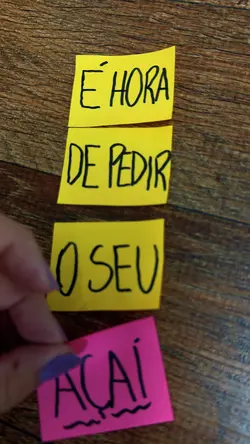 É HORA
DE PEDIR
O SEU
AÇAÍ